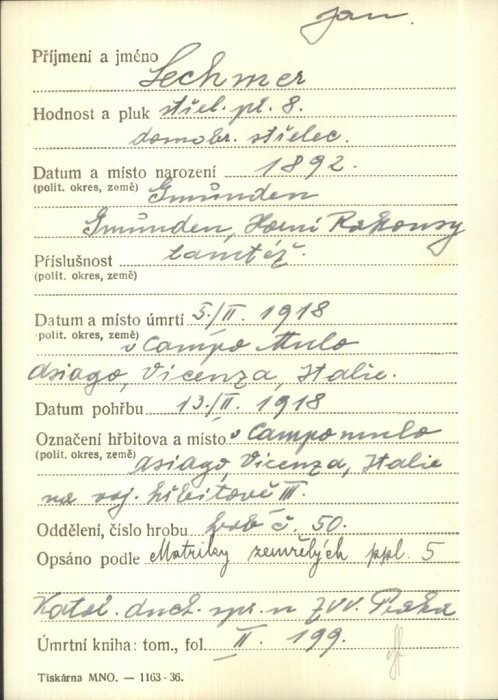 Jan.
Příjmení a jméno Lechmer
Hodnost a pluk střel. pl. 8.
domobr. střelec.
Datum a místo narození 1892.
(polit. okres, země) Gmünden
Gmünden, Horní Rakousy
Příslušnost tamtéž.
(polit. okres, země)
Datum a místo úmrtí 5./II. 1918
polit. okres, země) v Campo Mulo
Asiago, Vicenza, Italie.
Datum pohřbu 13./II. 1918
Označení hřbitova a místo v Campomulo
(polit. okres, země) Asiago, Vicenza, Italie
na voj. hřbitově III.
Oddělení, číslo hrobu hrob č. 50.
Opsáno podle Matriky zemřelých ppl. 5
Katol. duch. spr. n ZVV. Praha
Úmrtní kniha: tom., fol. II. 199.
Tiskárna MNO. — 1163-36.